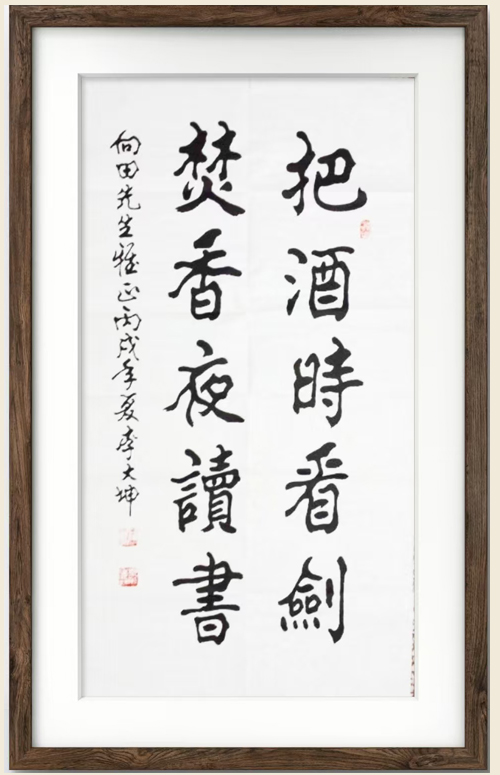 把酒時看劍
焚香夜讀書
向田先生雅正丙戌年夏李大坤